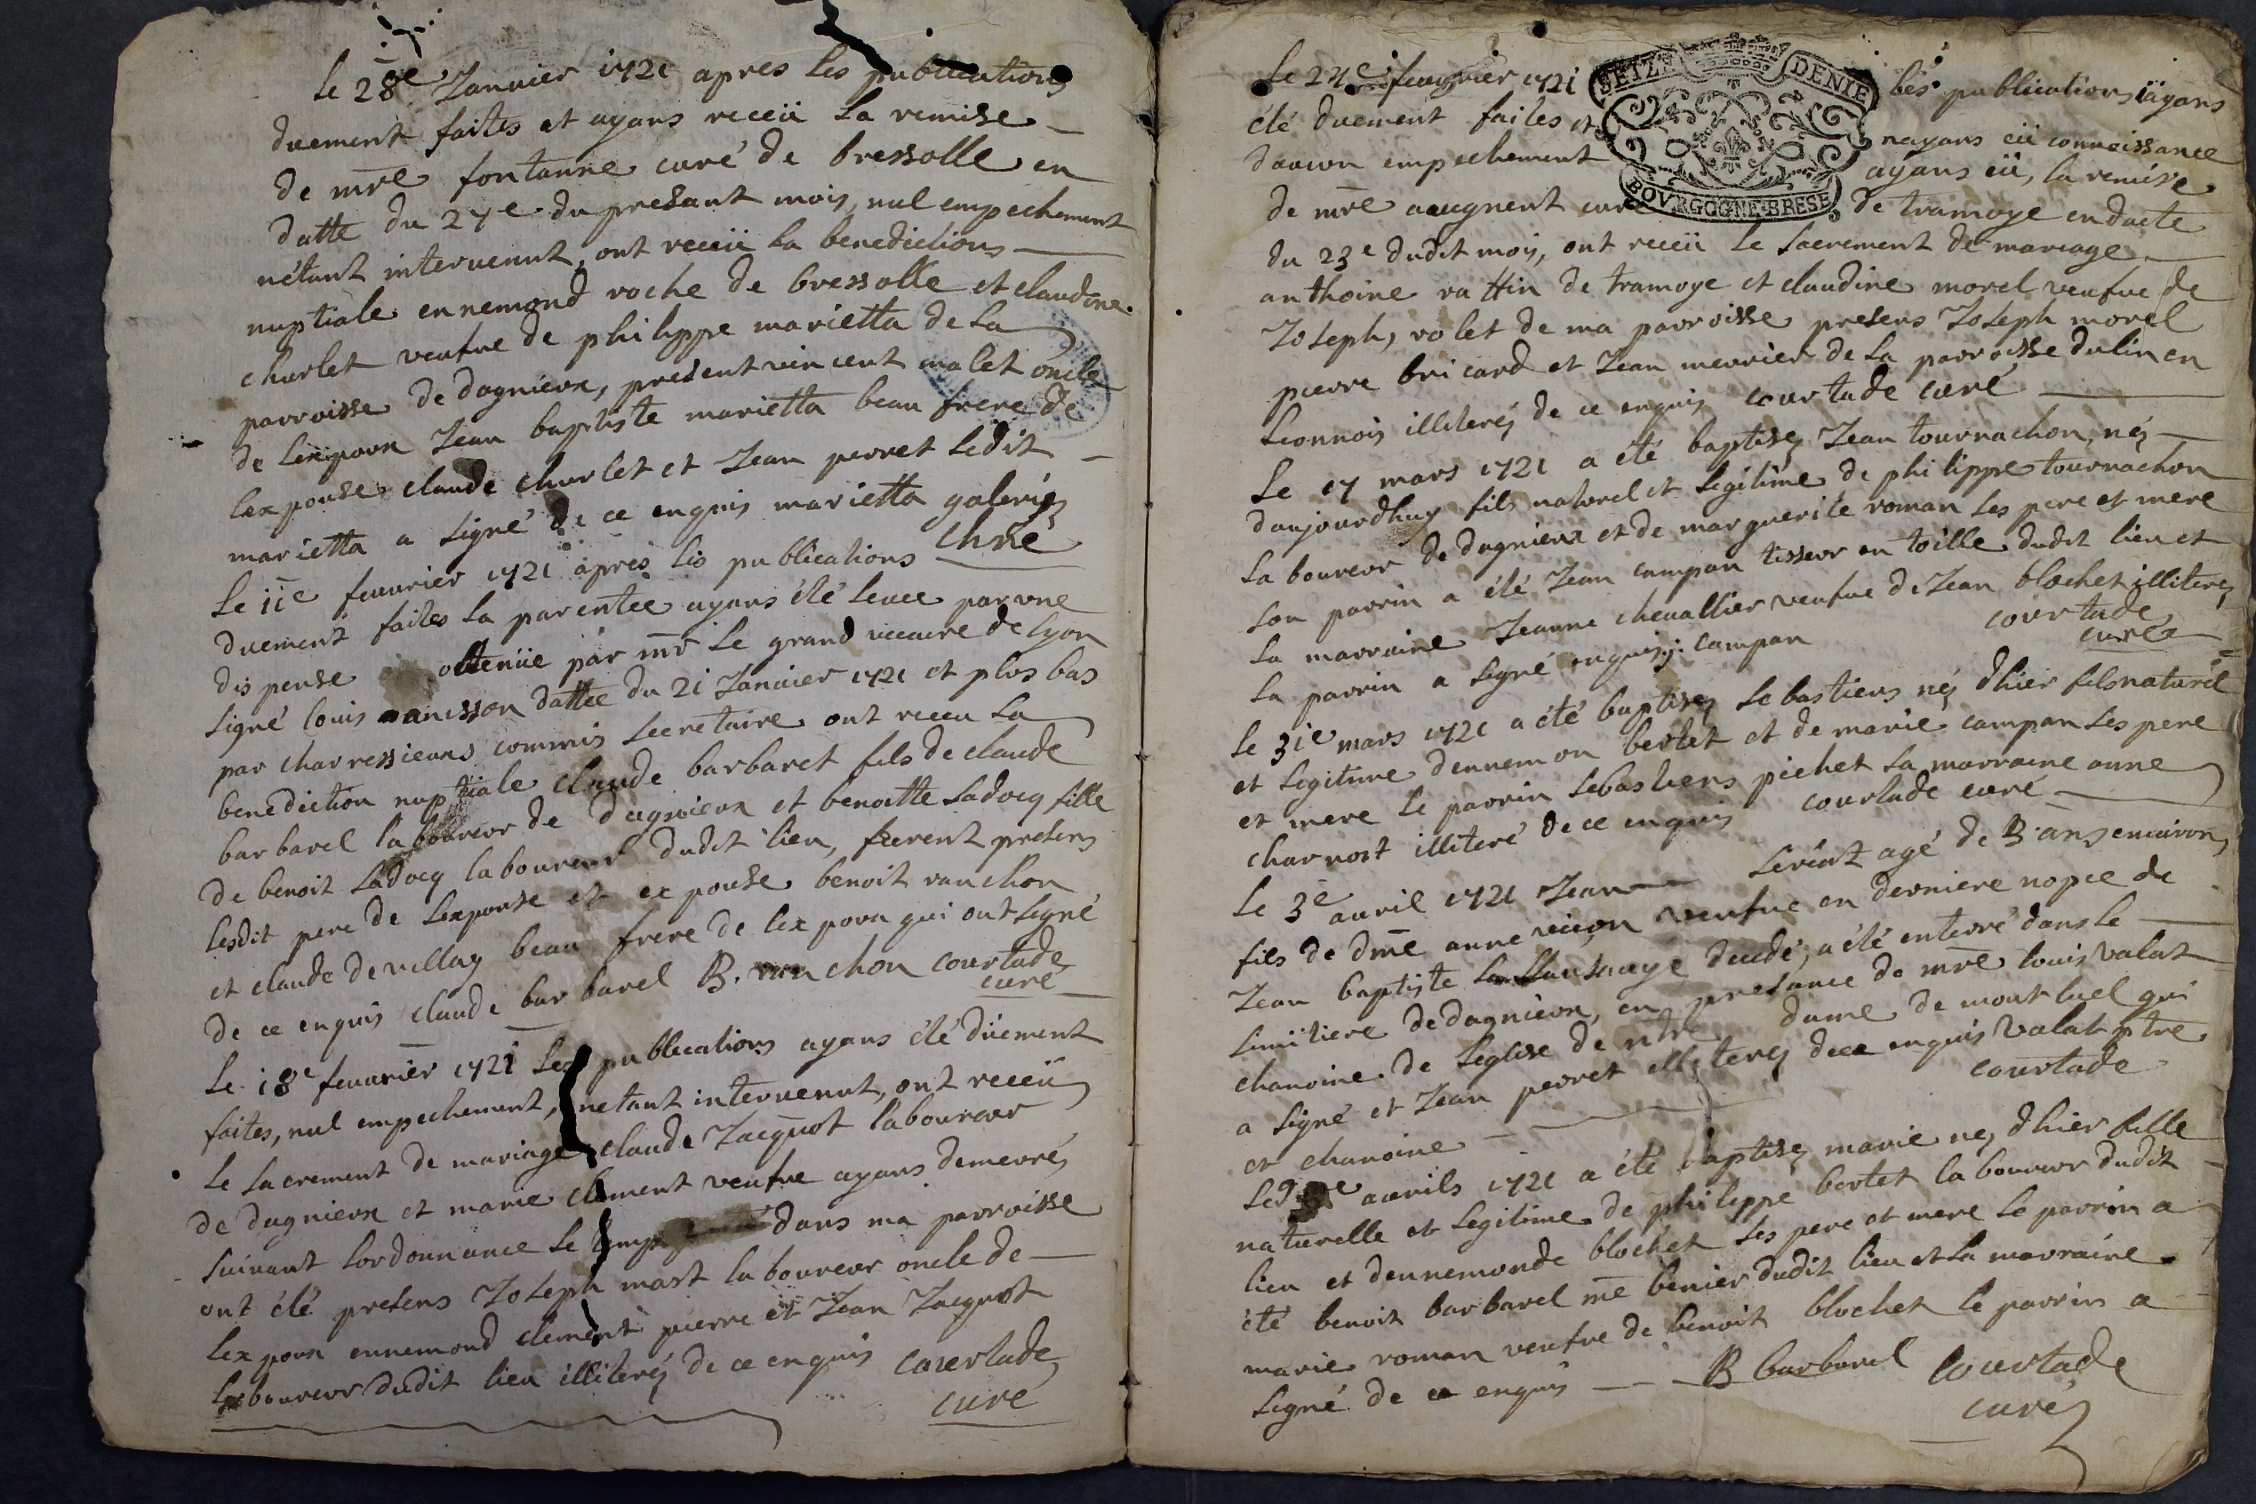 le 28e Janvier 1721 apres les publications
duement faites et ayans receü la remise
de mre fontanne curé de bressolle en
datte du 27e du presant mois, nul empechement
nétant intervenut, ont receü la benediction
nuptiale ennemond roche de bressolle et claudine
churlet veufve de philippe marietta de la
parroisse de dagnieux, present vincent malet oncle
de lexpoux Jean baptiste marietta beau frere de
lexpouse claude churlet et Jean perret ledit
marietta a signé de ce enquis marietta
Le 11e fevurier 1721 apres les publications
duement faites la parentée ayans été levée par une
dispense obtenüe par mr le grand viccaire de lyon
signé louis dattée du 21 Janvier 1721 et plus bas
par charressieux commis secretaire ont receu la
benediction nuptiale claude barbaret fils de claude
barbarel laboureur de dagnieux et benoitte Sadocq fille
de benoit Sadocq laboureur dudit lieu, furent presens
lesdit pere de lexpouse et expouse benoit vanchon
et claude devillay beau frere de lexpoux qui ont signé
de ce enquis claude barbarel B. vanchon courtade
curé
Le 18e fevurier 1721 les publications ayans été düement
faites, nul empechement, netant intervenut, ont receü
le sacrement de mariage claude Jacquot laboureur
de dagnieux et marie clement veufve ayans demeuré
suivant lordonnance le dans ma parroisse
ont été presens Joseph mast laboureur oncle de
lexpoux ennemond clement pierre et Jean Jacquot
laboureur dudit lieu illiterés de ce enquis courtade
curé
Le 24e fevurier 1721 les publications ayans
SEIZE DENIE
été duement faites et nayans eü connoissance
daucun empechement ayans eü, la remise
de mre curé de tramoye en datte
BOVRGOGNE·BRESE
du 23e dudit mois, ont receü le sacrement de mariage
anthoine rattin de tramoye et claudine morel veufve de
Joseph, volet de ma parroisse presens Joseph morel
pierre bricard et Jean meurier de la parroisse dulin en
lionnois illiterés de ce enquis courtade curé
Le 17 mars 1721 a été baptisé Jean tournachon, né
daujourdhuy fils naturel et legitime de philippe tournachon
laboureur de dagnieux et de marguerite roman ses pere et mere
son parrin a été Jean campan tisseur en toille dudit lieu et
la marraine Jeanne chevallier veufve de Jean blochet illiteré
le parrin a signé enquis J: campan courtade
curé
Le 31e mars 1721 a été baptisé sebastiens né dhier fils naturel
et legitime dennemon berlet et de marie campan ses pere
et mere le parrin sebastiens pichet la marraine anne
charnost illiteré de ce enquis courtade curé
Le 3e avril 1721 Jean agé de 3 ans environ
fils de dme anne veufve en derniere nopce de
Jean baptiste decedé, a été enterré dans le
simitiere de dagnieux, en presance de mre louis valat
chanoine de leglise de ntre dame de montluel qui
a signé et Jean perret illiterés de ce enquis valat ptre
et chanoine courtade
avrils 1721 a été baptisé marie né dhier fille
naturelle et legitime de philippe bertet laboureur dudit
lieu et dennemonde blochet ses pere et mere le parrin a
été benoit barbarel me benier dudit lieu et la marraine
marie roman veufve de benoit blochet le parrin a
signé de ce enquis B barbarel courtade
curé